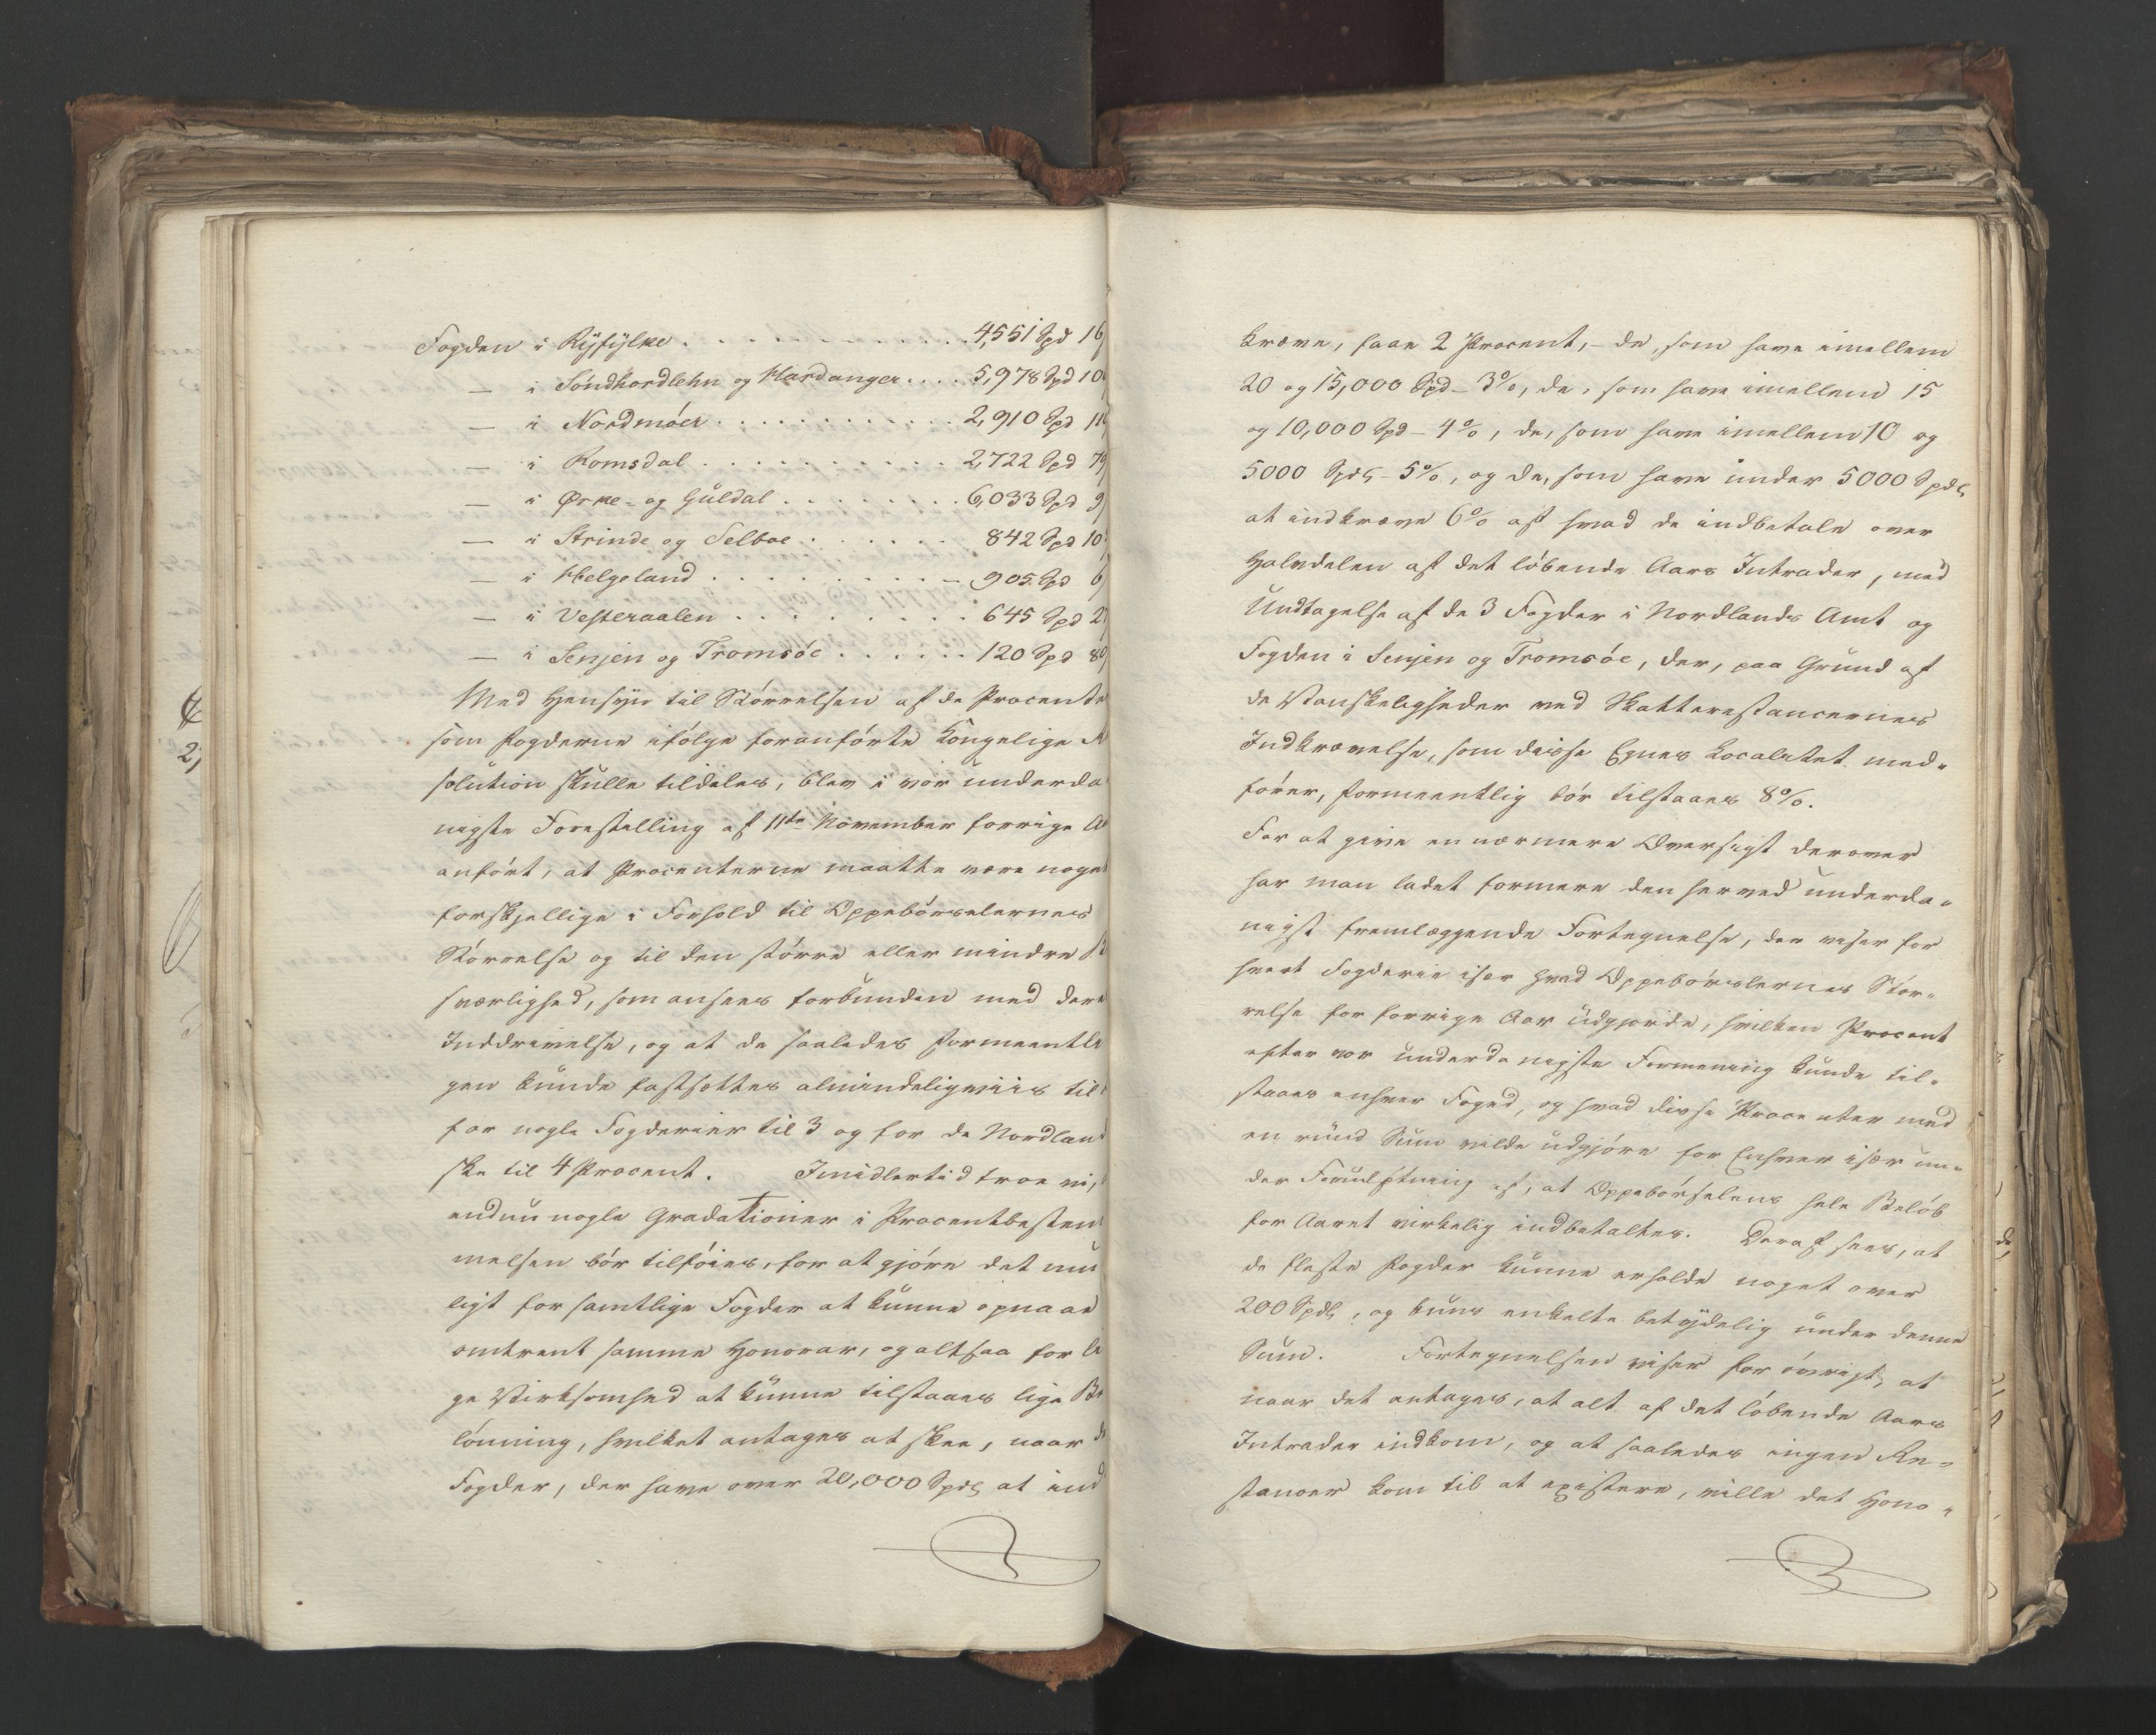 Fogden i Ryfylke . . . . . . . . . . . . 4,551 Spd 16
— i Söndhordlehn og Hardanger . . . . 5,978 Spd 10
— i Nordmöer . . . . . . . . . . . 2,910 Spd 11
— i Romsdal . . . . . . . . . . 2,722 Spd 79
— i Ørke- og Guldal . . . . . . . . 6,033 Spd 9
— i Strinde og Selboe . . . . . . 842 Spd 10
— i Helgeland . . . . . . . . . 905 Spd 6
— i Vesteraalen . . . . . . . . 645 Spd 2
— i Senjen og Tromsöe . . . . . . 120 Spd 80
Med Hensyn til Störrelsen af de Procente
som Fogderne ifölge foranförte Kongelige
solution skulle tildeles, blev i vor underda
nigste Forestilling af 11te November forrige
anfört, at Procenterne maatte være noget
forskjellige i Forhold til Oppebörselernes
Störrelse og til den större eller mindre
sværlighed, som ansees forbunden med dere
Inddrivelse, og at de saaledes formeentli
gen kunde fastsættes almindeligviis til
for nogle Fogderier til 3 og for de Nordland
ske til 4 Procent. Imidlertid troe vi,
endnu nogle Gradationer i Procentbestem
melsen bör tilföies, for at gjöre det mu
ligt for samtlige Fogder at kunne opnaae
omtrent samme Honorar, og altsaa for li
ge Virksomhed at kunne tilstaaes lige Be
lönning, hvilket antages at skee, naar de
Fogder, der have over 20,000 Spdlr at ind
kræve, faae 2 Procent, - de, som have imellem
20 og 15,000 Spd - 3%, de, som have imellem 15
og 10,000 Spd - 4%, de, som have imellem 10 og
5000 Spdlr - 5%, og de, som have under 5000 Spdlr
at indkræve 6% af hvad de indbetale over
Halvdelen af det löbende Aars Intrader, med
Undtagelse af de 3 Fogder i Nordlands Amt og
Fogden i Senjen og Tromsöe, der, paa Grund af
de Vanskeligheder ved Skatterestancernes
Indkrævelse, som disse Egnes Localitet med-
förer, formeentlig bör tilstaaes 8%.
For at give en nærmere Oversigt derover
har man ladet formere den herved underda-
nigst fremlæggende Fortegnelse, der viser for
hvert Fogderie især hvad Oppebörslernes Stör-
relse for forrige Aar udgjorde, hvilken Procent
efter vor underdanigste Formening kunde til-
staaes enhver Foged, og hvad disse Procenter med
en rund Sum vilde udgjöre for Enhver især un-
der Forudsætning af, at Oppebörselens hele Belöb
for Aaret virkelig indbetaltes. Deraf sees, at
de fleste Fogder kunne erholde noget over
200 Spdlr, og kuns enkelte betydelig under denne
Sum. Fortegnelsen viser for övrigt, at
naar det antages, at alt af det löbende Aars
Intrader indkom, og at saaledes ingen Re-
stancer kom til at existere, ville det Hono-